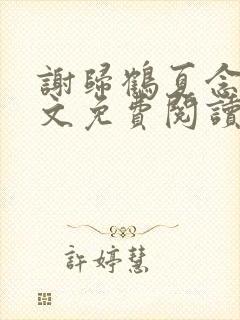 謝歸鶴夏念
文免費閱讀
許婷慧